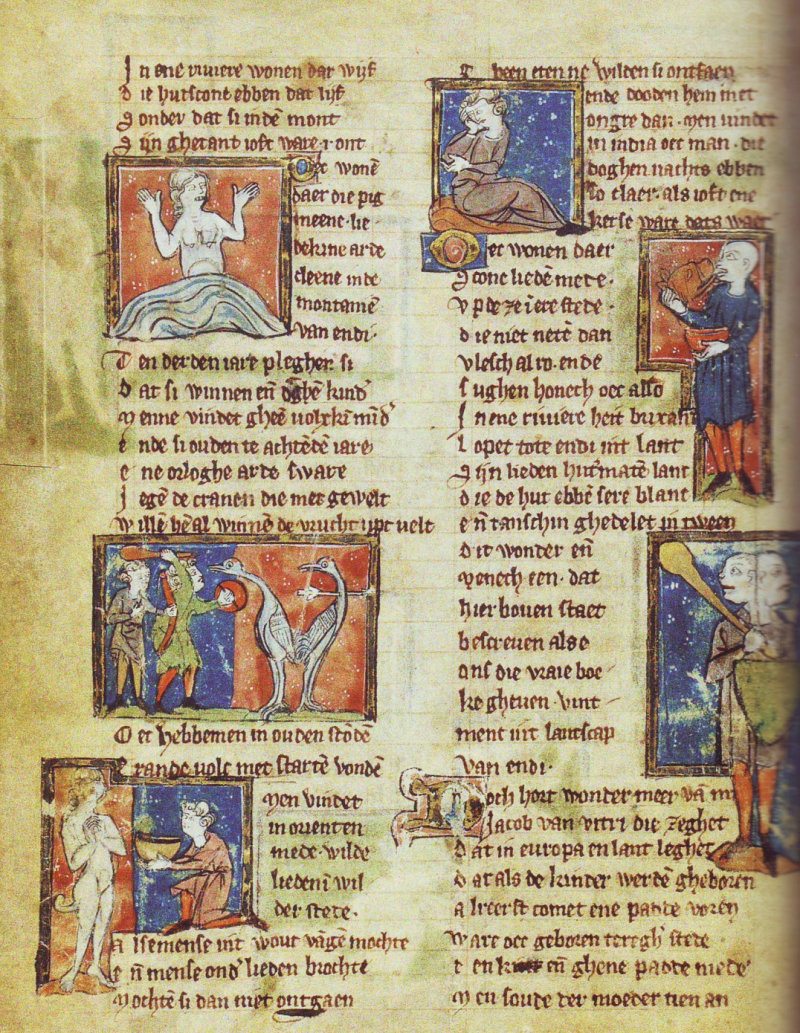 In ene riuiere wonen dar wijf
Die hutscone ebben dat lijf
Sonder dat si indē mont
Sijn ghetant ioft ware .i. ont
Oec wonē
daer die pig
meene . lie
dekine arde
cleene inde
montainē
van endi .
Ten derden iare pleghen si
Dat si winnen eñ kindʼ
Menne vindet gheē volx mindʼ
Ende si ouden te achtēdē iare
Ene orloghe arde sware
Jegē de cranen die met gewelt
Willē winnē de vrucht upt velt
Oec hebbemen in ouden stōdē
Erande volc met startē vondē
Men vindet
in orienten
mede . wilde
liedenī wil
der stede .
Alsemense uut wout vāgē mochte
Eñ mense ondʼ lieden brochte
Mochtē si dan niet ontgaen
Theen eten ne wilden si ontfaen
ende dooden hem met
ongre dan . men vindet
in india oec man . die
doghen nachts ebben
so claer . als ioft ene
kerse ware dats waer
Oet wonen daer
Scone liedē mede .
Vp de zeiere stede .
Die niet netē dan
Vlesch al ro . ende
Sughen honech oec also
In ene riuiere heit
Lopet tote endi int lant
Sijn lieden hutʼmatē lant
Die de hut ebbē sere blant
Eñ tanschin ghedelet in tween
Dit wonder eñ
Menech een . dat
hier bouen staet
bescreuen also
ons die vraie boe
ke gheuen . vint
ment int lantscap
van endi .
Noch hort wonder meer vā mi
Jacob van vitri die zeghet
Dat in europa en lant leghet
Dat als de kinder werdē gheboren
Alreerst comet ene padde voren
Ware oec geboren teregħ stede
Een eñ ghene padde mede
Men soude der moeder tien an